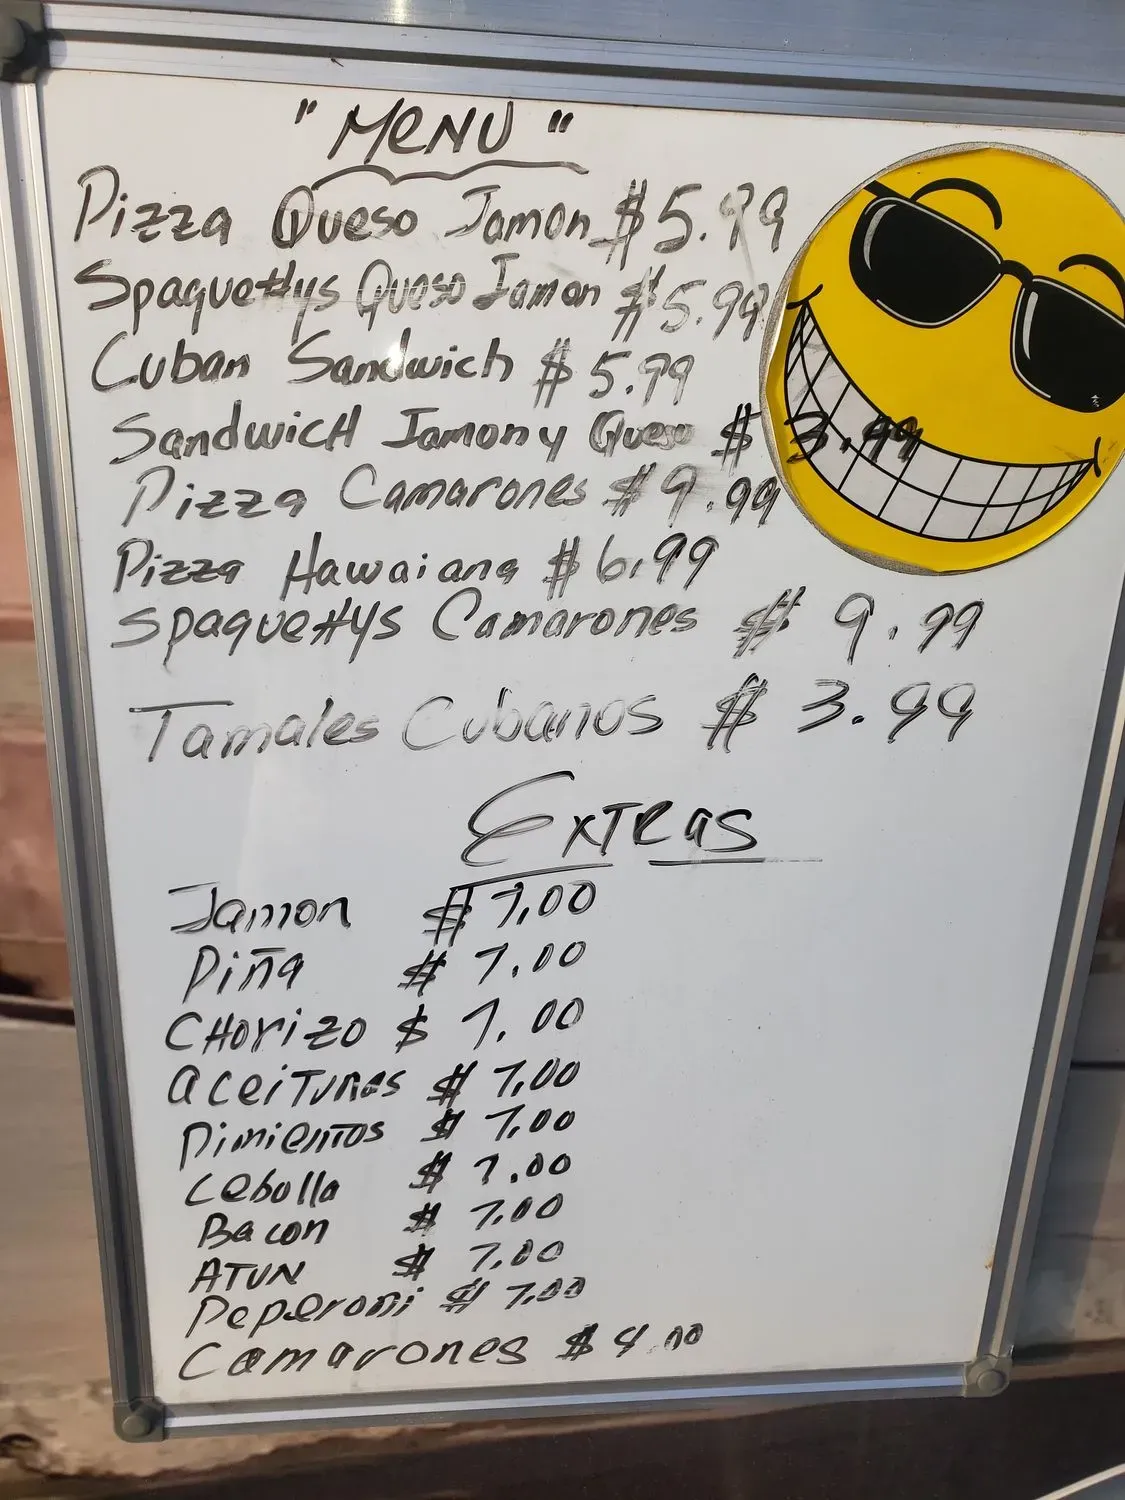 "MENU"
Pizza Queso Jamon $5.99
Spaquettys Queso Jamon $5.99
Cuban Sandwich $5.99
Sandwich Jamon y Queso $3.99
Pizza Camarones $9.99
Pizza Hawaiana $6.99
Spaquettys Camarones $9.99
Tamales Cubanos $3.99
Extras
Jamon $1.00
Piña $1.00
CHorizo $1.00
aceiTunas $1.00
Pimientos $1.00
Cebolla $1.00
Bacon $1.00
ATUN $1.00
Peperoni $1.00
Camarones $4.00